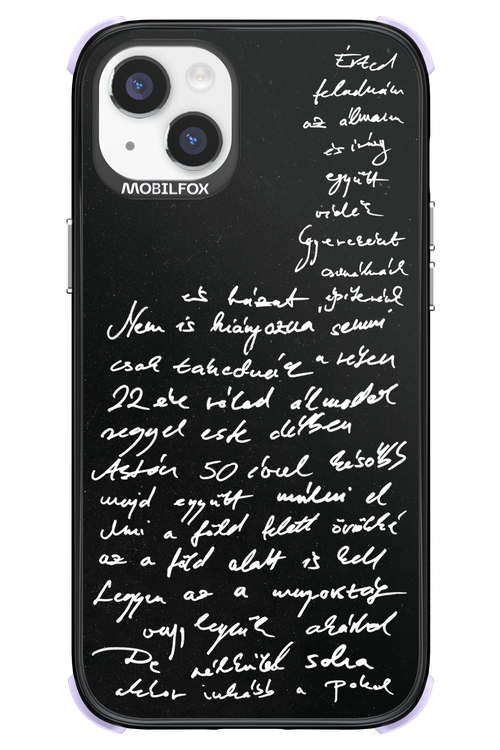 MOBILFOX
Érted
feladnám
az álmaim
és így
együtt
vidék
Gyerekeket
csinálnánk
és házat építenénk
Nem is hiányozna semmi
csak takarónk a
22 éve rólad álmodok
reggel este délben
Aztán 50 évvel később
majd együtt múlni el
Ami a föld felett örökké
az a föld alatt is kell
Legyen az a mennyország
vagy legyünk akárhol
De nélküled soha
akkor inkább a Pokol